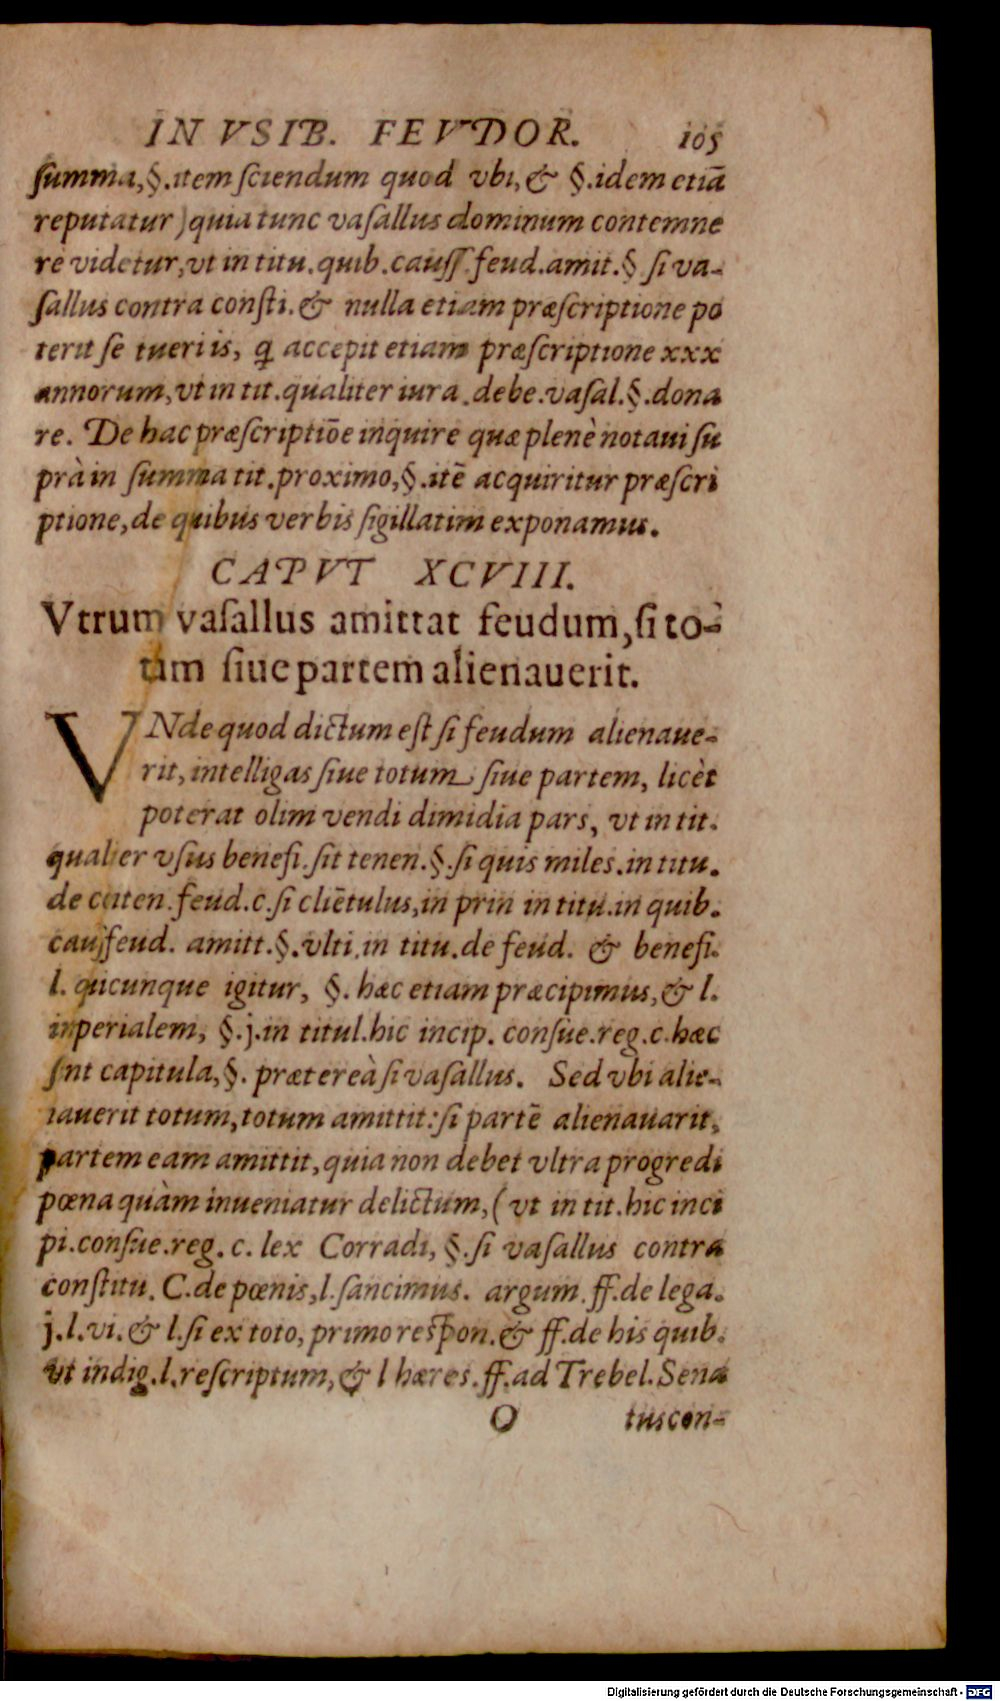 IN VSIB. FEVDOR. 105
ſumma,§.item ſciendum quod vbi,& §.idem etiā
reputatur)quia tunc vaſallus dominum contemne
re videtur,vt in titu.quib.cauſſ.feud.amit.§ ſi va-
ſallus contra conſti.& nulla etiam præſcriptione po
terit ſe tueri is, ꝗ accepit etiam præſcriptione xxx
annorum,vt in tit.qualiter iura.debe.vaſal.§.dona
re. De hac præſcriptiōe inquire quæ plenè notaui ſu
prà in ſumma tit.proximo,§.itē acquiritur præſcri
ptione,de quibus verbis ſigillatim exponamus.
CAPVT XCVIII.
Vtrum vaſallus amittat feudum,ſi to-
tum ſiue partem alienauerit.
VNde quod dictum eſt ſi feudum alienaue-
rit,intelligas ſiue totum ſiue partem, licèt
poterat olim vendi dimidia pars, vt in tit.
qualier vſus benefi.ſit tenen.§.ſi quis miles.in titu.
de caten.feud.c.ſi cliētulus,in prin in titu.in quib.
cauſſfeud. amitt.§.vlti.in titu.de feud. & benefi.
l. quicunque igitur, §. hæc etiam præcipimus,& l.
inperialem, §.j.in titul.hic incip. conſue.reg.c.hæc
ſnt capitula,§. prætereà ſi vaſallus. Sed vbi alie-
nauerit totum,totum amittit:ſi partē alienauarit,
partem eam amittit,quia non debet vltra progredi
pœna quàm inueniatur delictum,(vt in tit.hic inci
pi.conſue.reg.c. lex Corradi, §.ſi vaſallus contra
conſtitu. C.de pœnis,l.ſancimus. argum.ff.de lega.
j.l.vi.& l.ſi ex toto,primo reſpon.& ff.de his quib.
vt indig.l.reſcriptum,& l hæres.ff.ad Trebel.Sena
O tuscon-
Digitalisierung gefördert durch die Deutsche Forschungsgemeinschaft - DFG